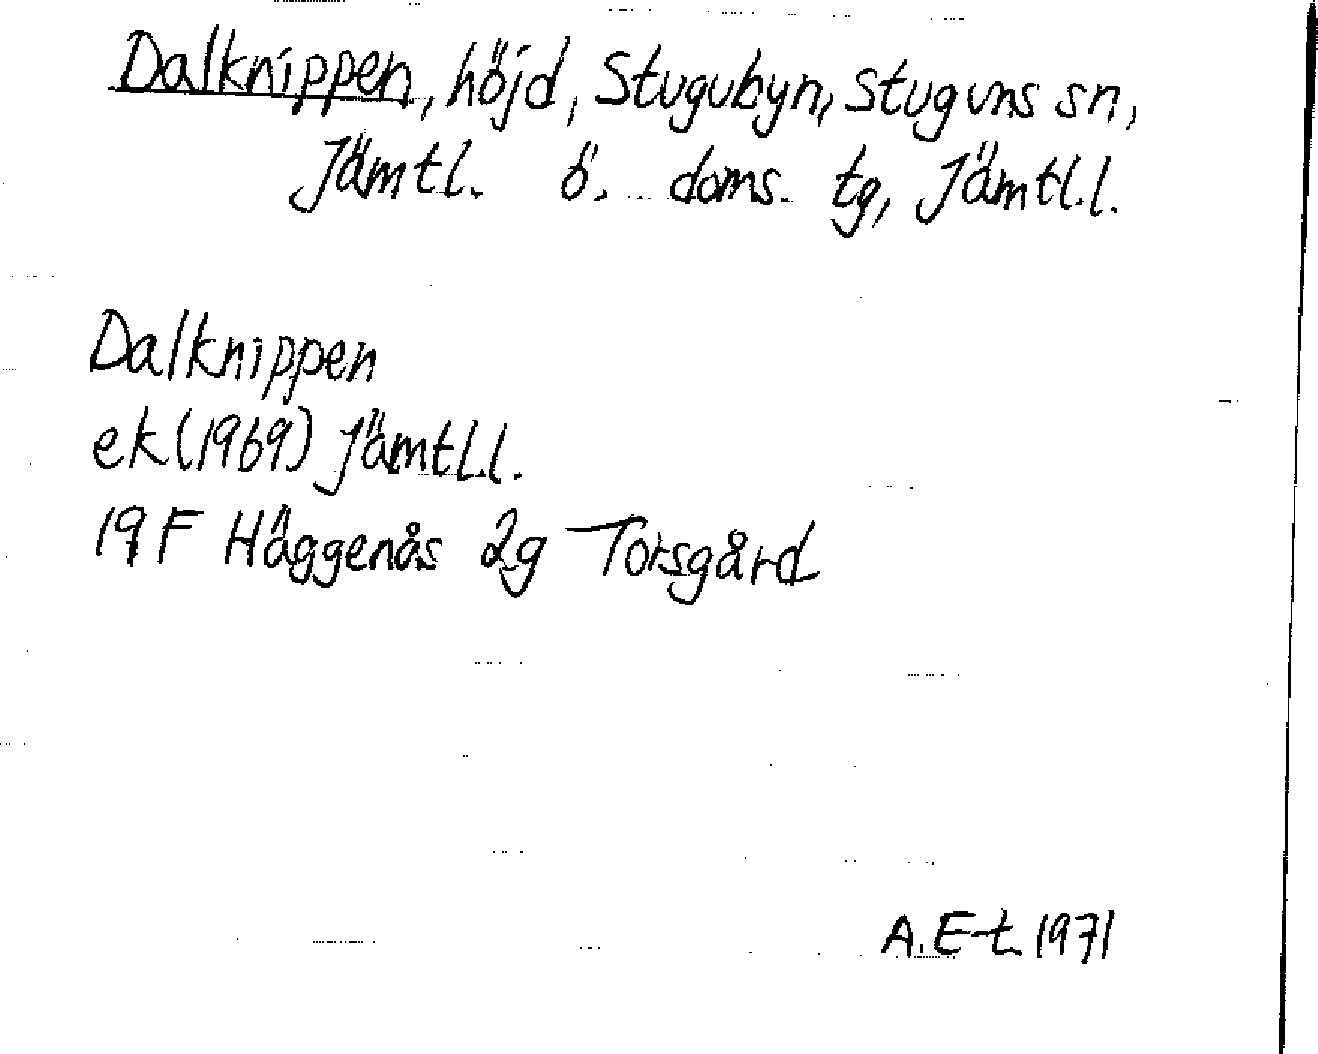 Dalknippen, höjd, Stugubyn, Stuguns sn,
Jämtl. ö. doms. tg, Jämtl.l.
Dalknippen
ek (1969) Jämtl.l.
19F Häggenås 2g Torsgård
A.E-t 1971